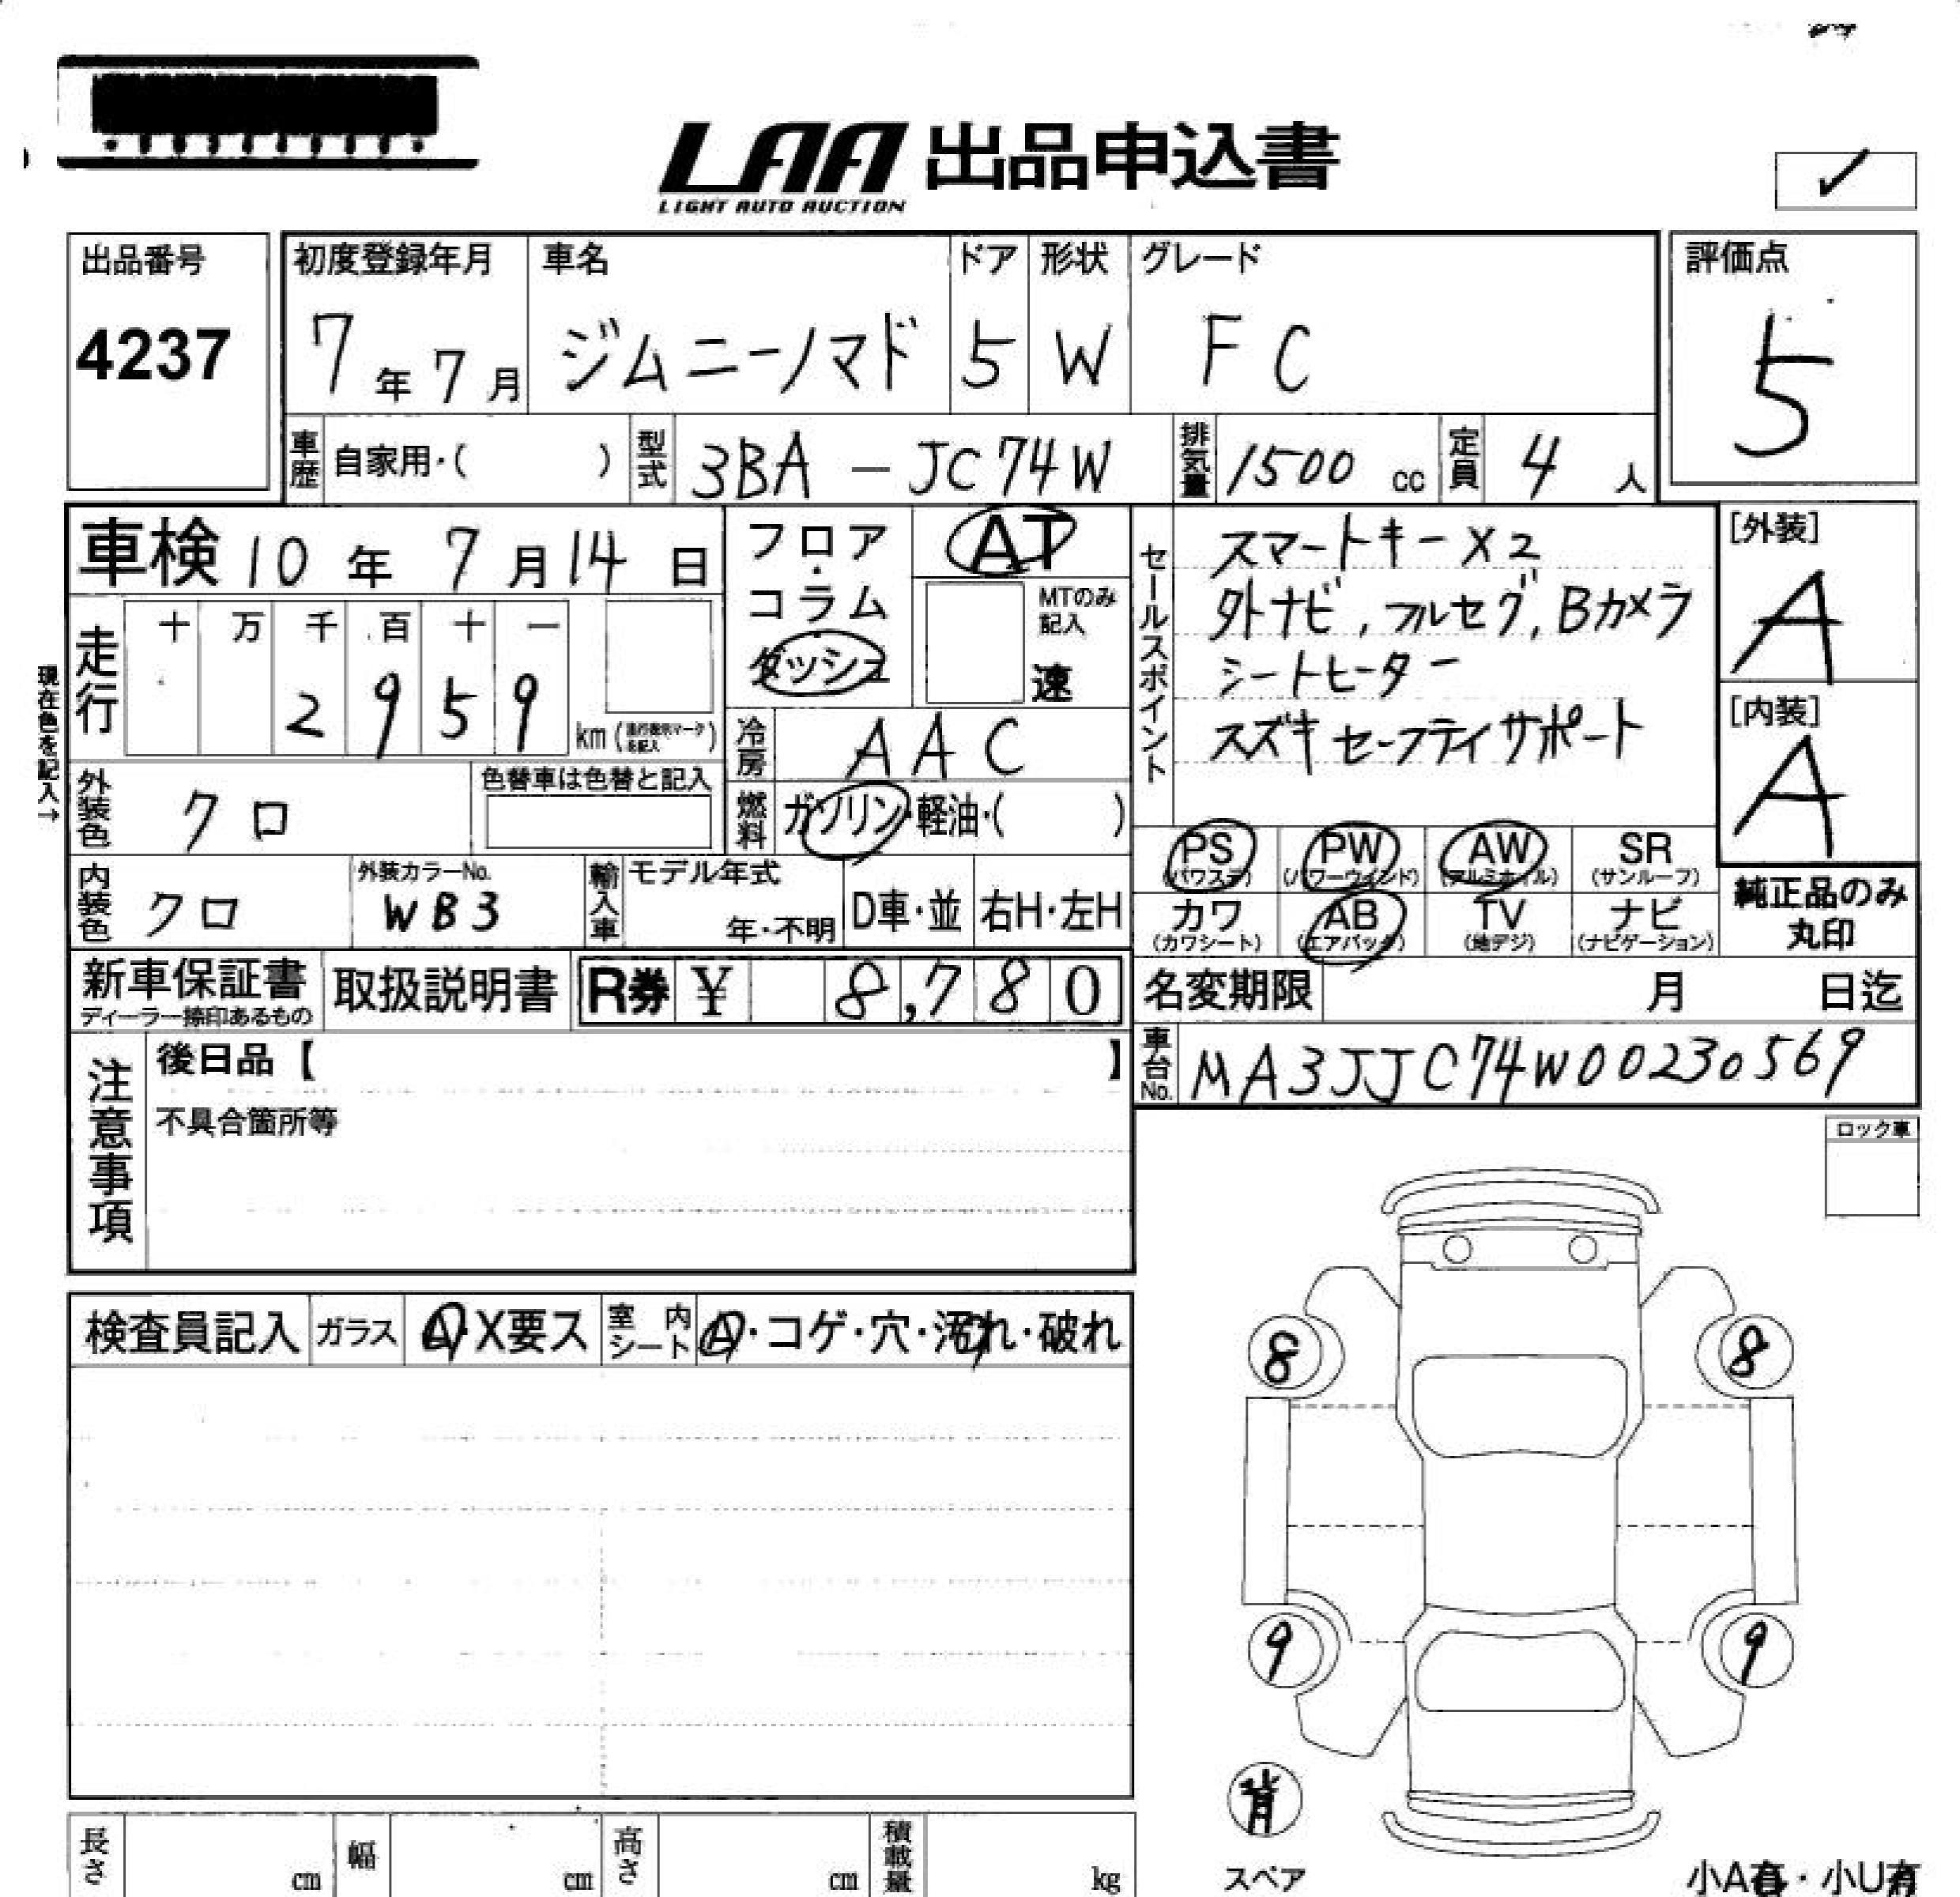 LAA 出品申込書
LIGHT AUTO AUCTION
✓
出品番号
4237
初度登録年月
7年7月
車名
ジムニーノマド
ドア
5
形状
W
グレード
FC
評価点
5
車歴 自家用・( )
型式 3BA-JC74W
排気量 1500 cc
定員 4 人
車検 10年7月14日
フロア・コラム
ダッシュ
AT
MTのみ記入
速
セールスポイント
スマートキーX2
外ナビ,フルセグ,Bカメラ
シートヒーター
スズキセーフティサポート
[外装]
A
[内装]
A
現在色を記入→
走行
十 万 千 百 十 一
2 9 5 9
km
冷房 AAC
外装色 クロ
色替車は色替と記入
燃料 ガソリン・軽油・( )
PS (パワステ)
PW (パワーウィンド)
AW (アルミホイル)
SR (サンルーフ)
カワ (カワシート)
AB (エアバック)
TV (地デジ)
ナビ (ナビゲーション)
純正品のみ
丸印
内装色 クロ
外装カラーNo.
WB3
輸入車
モデル年式
年・不明
D車・並
右H・左H
新車保証書
ディーラー捺印あるもの
取扱説明書
R券 ¥ 8,780
名変期限 月 日迄
車台No. MA3JJC74W00230569
注意事項
後日品【 】
不具合箇所等
ロック車
検査員記入
ガラス A・X要ス
室内シート A・コゲ・穴・汚れ・破れ
8 8
9 9
背
スペア
長さ cm
幅 cm
高さ cm
積載量 kg
小A有・小U有